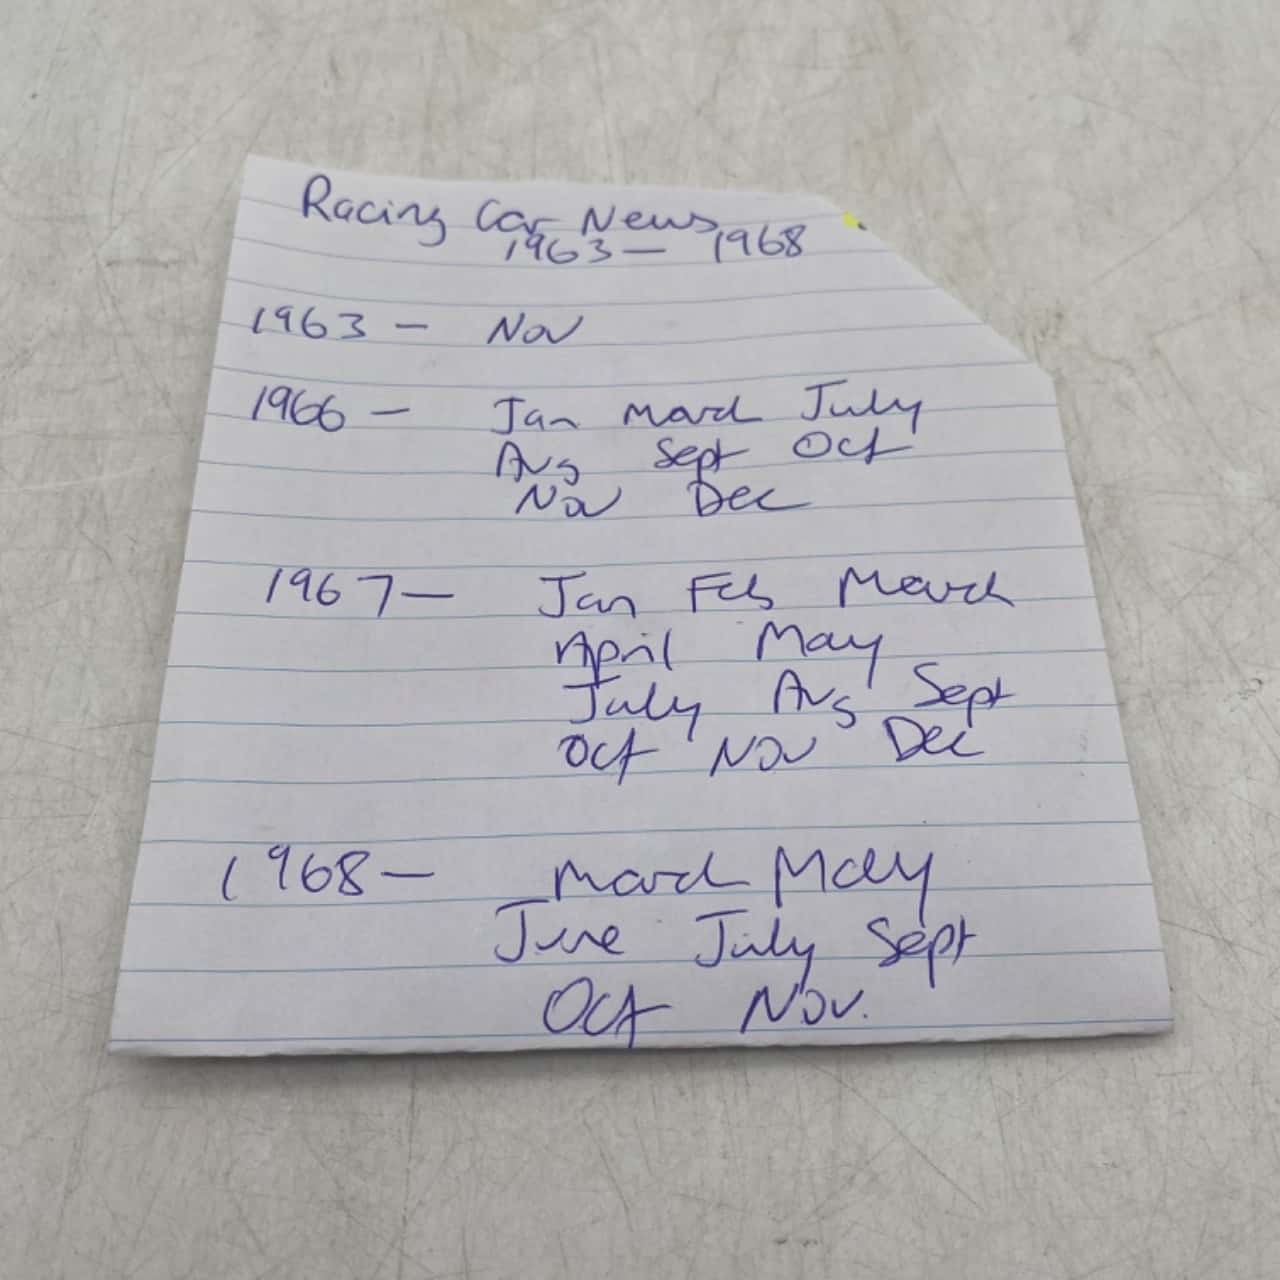 Racing Car News
1963 - 1968
1963 - Nov
1966 - Jan March July
Aug Sept Oct
Nov Dec
1967 - Jan Feb March
April May
July Aug Sept
Oct Nov Dec
1968 - March May
June July Sept
Oct Nov.